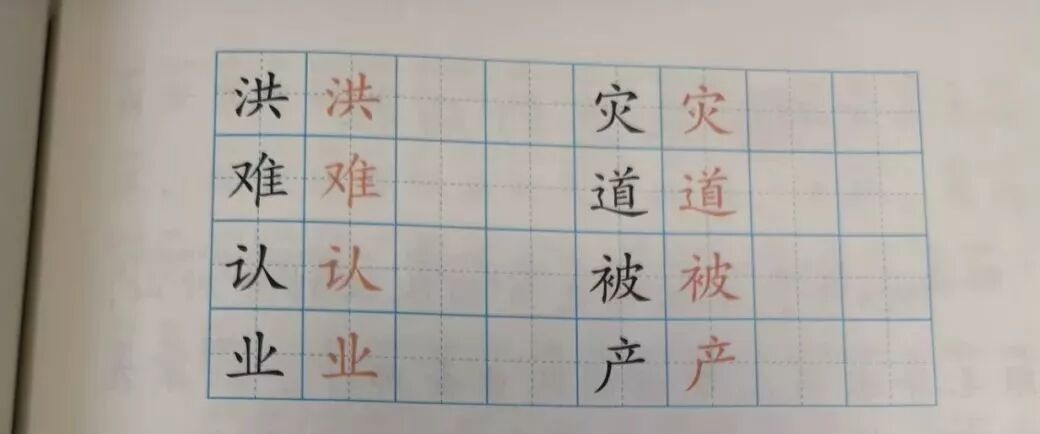 洪洪 灾灾
难难 道道
认认 被被
业业 产产